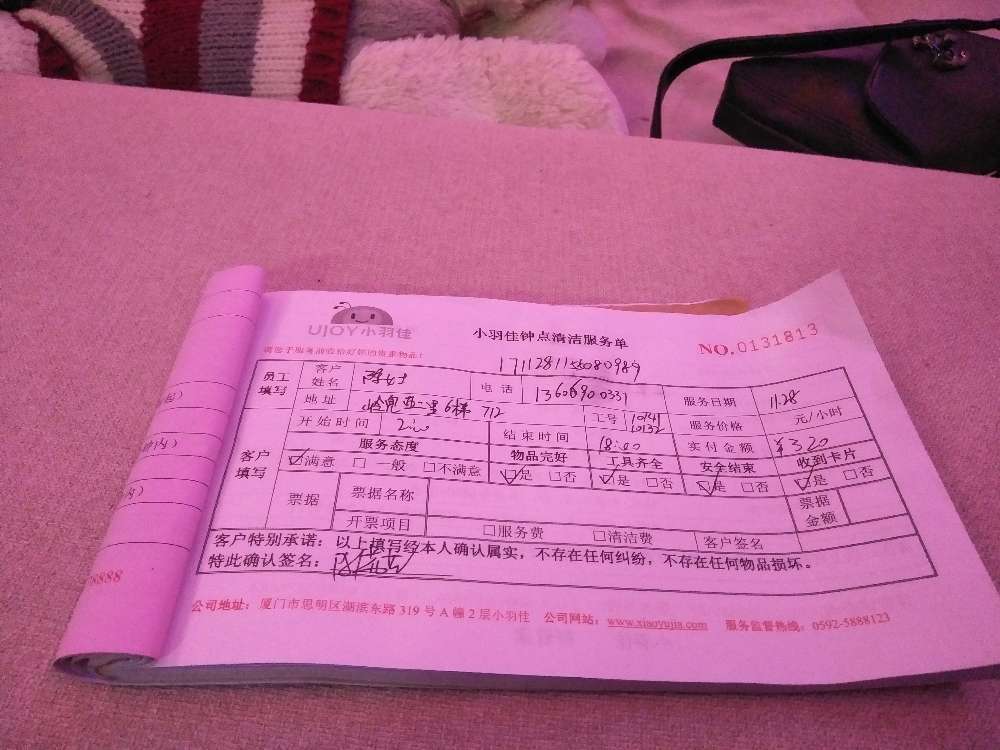 UJOY小羽佳
小羽佳钟点清洁服务单
NO.0131813
171128115080989
员工填写 客户姓名 电话 13606900331 服务日期 11.28
地址 6梯 712 工号 10141 10132 服务价格 元/小时
开始时间 结束时间 18:00 实付金额 ¥320
客户填写 服务态度 物品完好 工具齐全 安全结束 收到卡片
☑满意 □一般 □不满意 ☑是 □否 ☑是 □否 ☑是 □否 ☑是 □否
票据 票据名称 票据金额
开票项目 □服务费 □清洁费 客户签名
客户特别承诺：以上填写经本人确认属实，不存在任何纠纷，不存在任何物品损坏。
特此确认签名：
公司地址：厦门市思明区湖滨东路 319 号 A 幢 2 层小羽佳 公司网站：www.xiaoyujia.com 服务监督热线：0592-5888123
8888